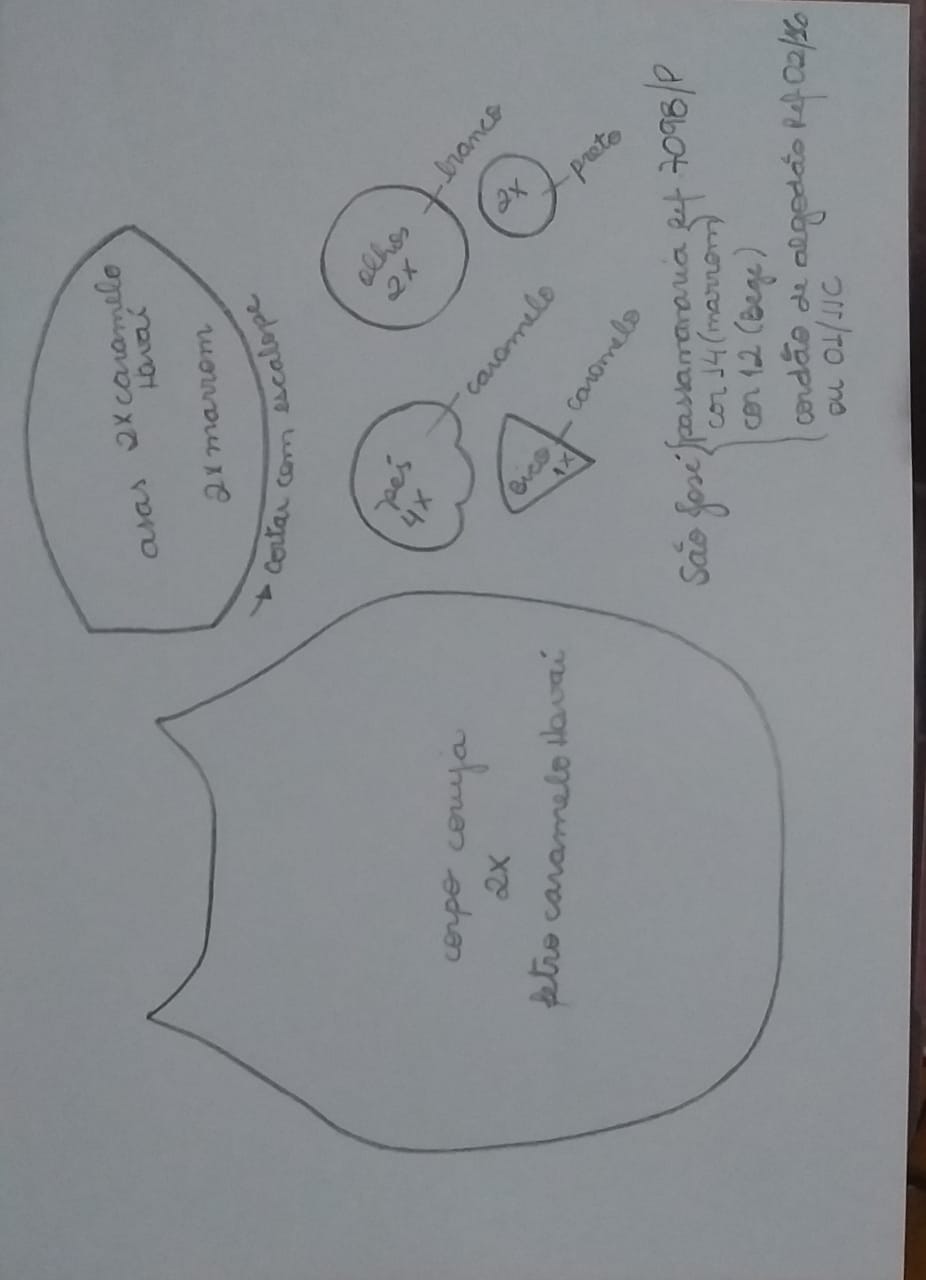 asas 2x caramelo
Havaí
2x marrom
→ Cortar com escalope
olhos
2x
branco
2x
preto
pés
4x
caramelo
bico
1x
caramelo
corpo coruja
2x
feltro caramelo Havaí
São José { passamanaria Ref 7098/P
cor 14 (marrom)
cor 12 (Bege)
cordão de algodão Ref 02/16
ou 01/11C